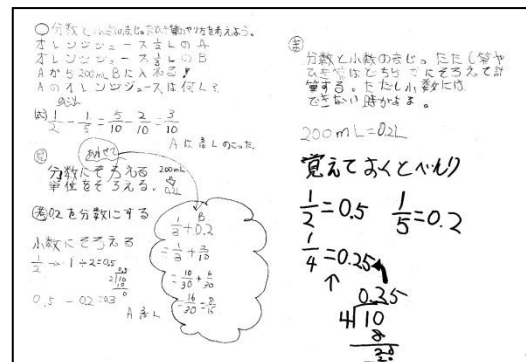 ○分数と小数のまじったひき算のやり方を考えよう。
オレンジジュース1/2LのA
オレンジジュース1/3LのB
Aから200mLBに入れる!
Aのオレンジジュースは何L?
1/2 - 1/5 = 5/10 - 2/10 = 3/10
Aは3/10Lのこった。
あわせて
分数にそろえる
単位をそろえる。
200mL
0.2L
0.2を分数にする
小数にそろえる
1/2 → 1÷2=0.5
0.5
2)10
10
0
0.5 - 0.2=0.3
B
1/3+0.2
=10/30+6/30
=16/30=8/15
㋮
分数と小数のまじったたし算や
ひき算はどちらかにそろえて計
算する。ただし小数には
できない時がある。
200mL=0.2L
覚えておくとべんり
1/2=0.5 1/5=0.2
1/4=0.25
↑
0.25
4)10
8
20